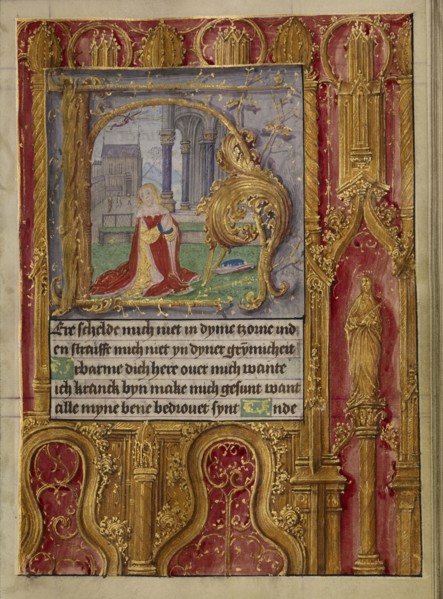 Ere schelde mich niet in dyme tzoine vnd
en straiff mich niet yn dyner grymicheit
Erbarme dich here ouer mich wante
ich kranck byn make mich gesunt want
alle myne bene bedrouet synt Vnde